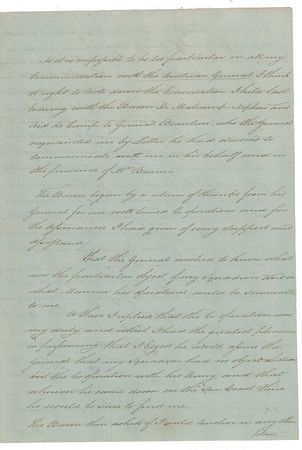 As it is impossible to be too particular in all my
Communication with the Austrian General I think
it right to Note down the Conversation I held last
Evening with the Baron De Malcamp Nephew and
Aid de Camp to General Beaulieu, who the General
acquainted me by Letter he had desired to
Communicate with me in his behalf and in
the presence of Mr Browne.
The Baron began by a return of thanks from his
General for our well timed Co-operations and for
the Assurances I had given of every Support and
assistance.
That the General wished to know what
was the particular object of my Squadron and in
what Manner his operations could be serviceable
to me.
to this I replied that the Co operation was
my duty and which I had the greatest pleasure
in performing that I beged he would assure the
General that my Squadron had no object whatever
but the Co operation with his Army and that
whenever he came down on the Sea Coast there
he would be sure to find me,
The Baron then asked if I would Anchor in any other
place